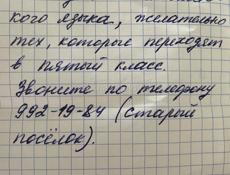 кого языка, желательно
тех, которые переходят
в пятый класс.
Звоните по телефону
992-19-84 (старый
посёлок).